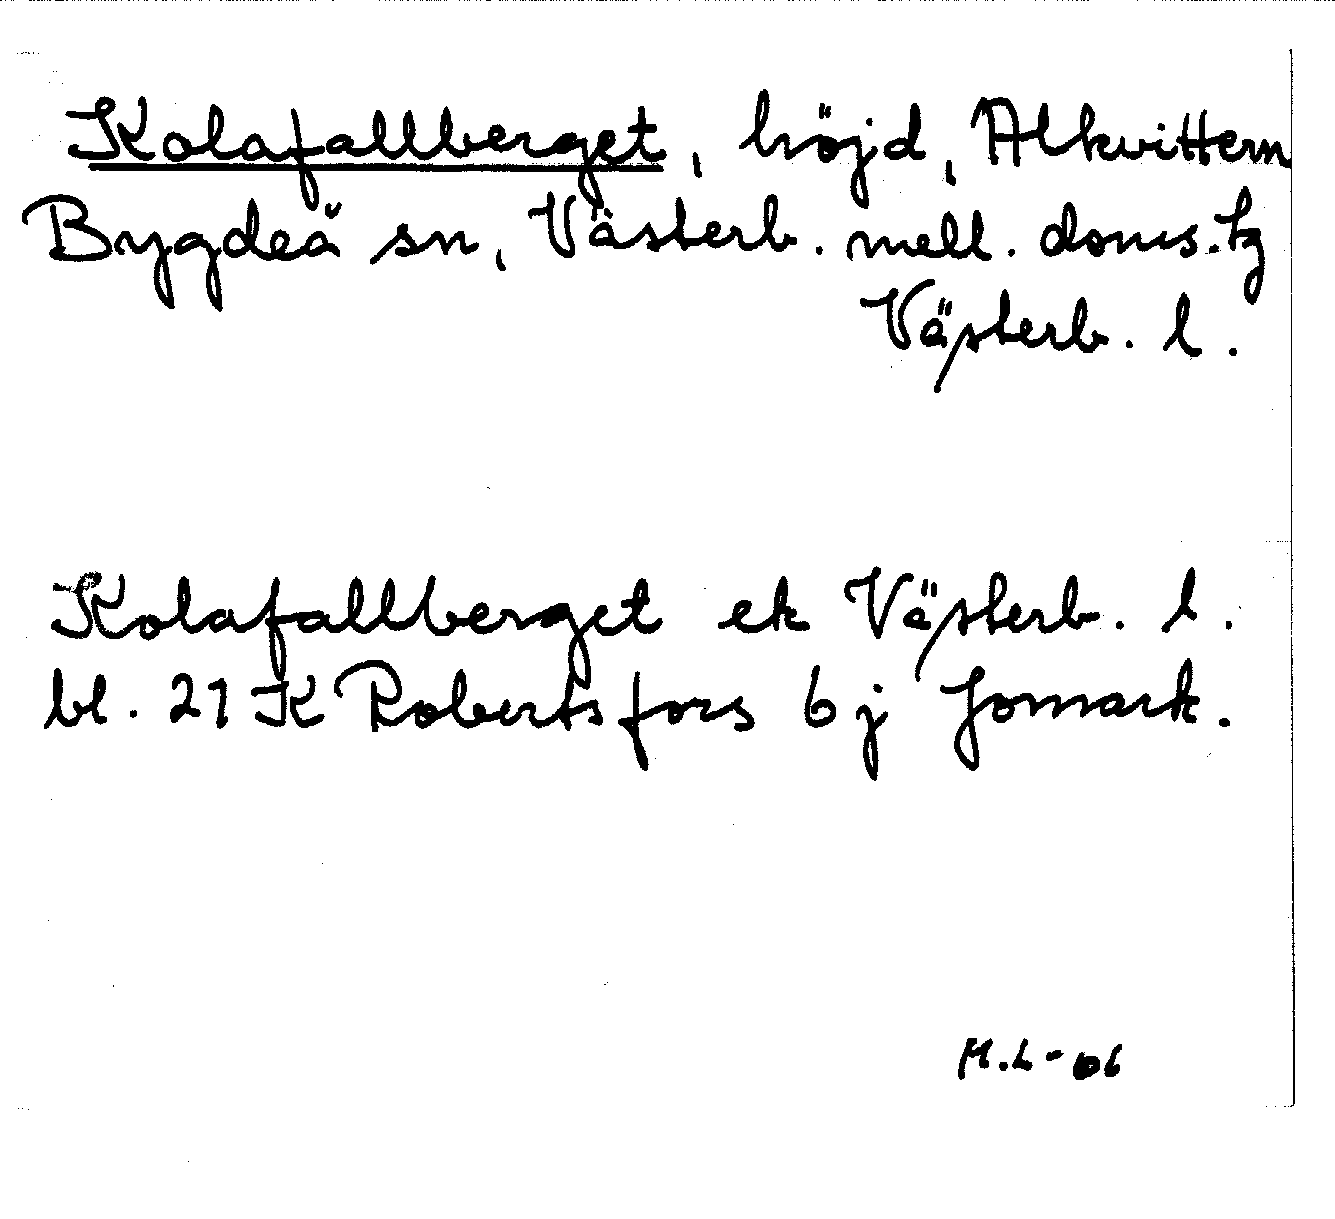 Kolafallberget, höjd, Alkvittern
Bygdeå sn, Västerb. mell. doms. tg
Västerb. l.
Kolafallberget ek Västerb. l.
bl. 21 K Robertsfors 6 j Jomark.
M.L-06